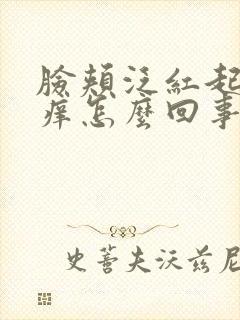 臉頰泛紅起
痒怎麼回事
史蒂夫沃茲尼